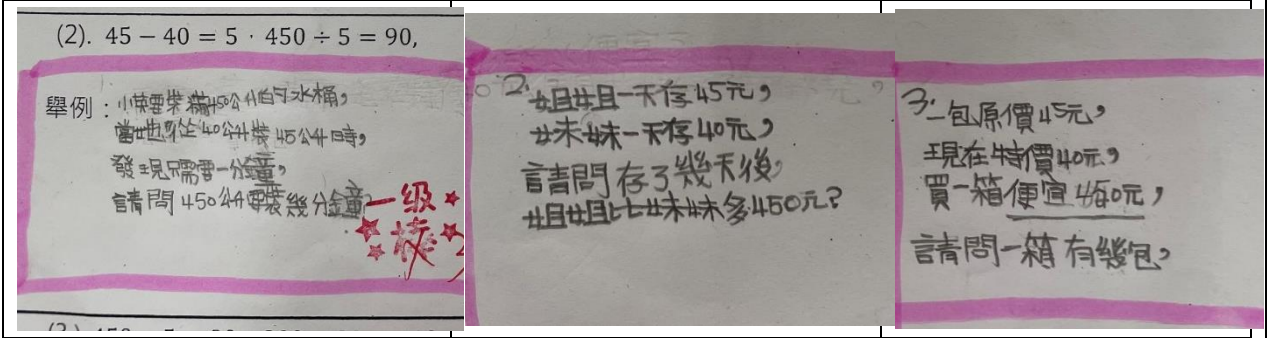 (2). 45 − 40 = 5 · 450 ÷ 5 = 90,
舉例：小英要裝滿450公升的水桶，
當她從40公升裝45公升時，
發現只需要一分鐘，
請問450公升要裝幾分鐘
一級
棒
2.姐姐一天存45元，
妹妹一天存40元，
請問存了幾天後，
姐姐比妹妹多450元？
3.一包原價45元，
現在特價40元，
買一箱便宜450元，
請問一箱有幾包，